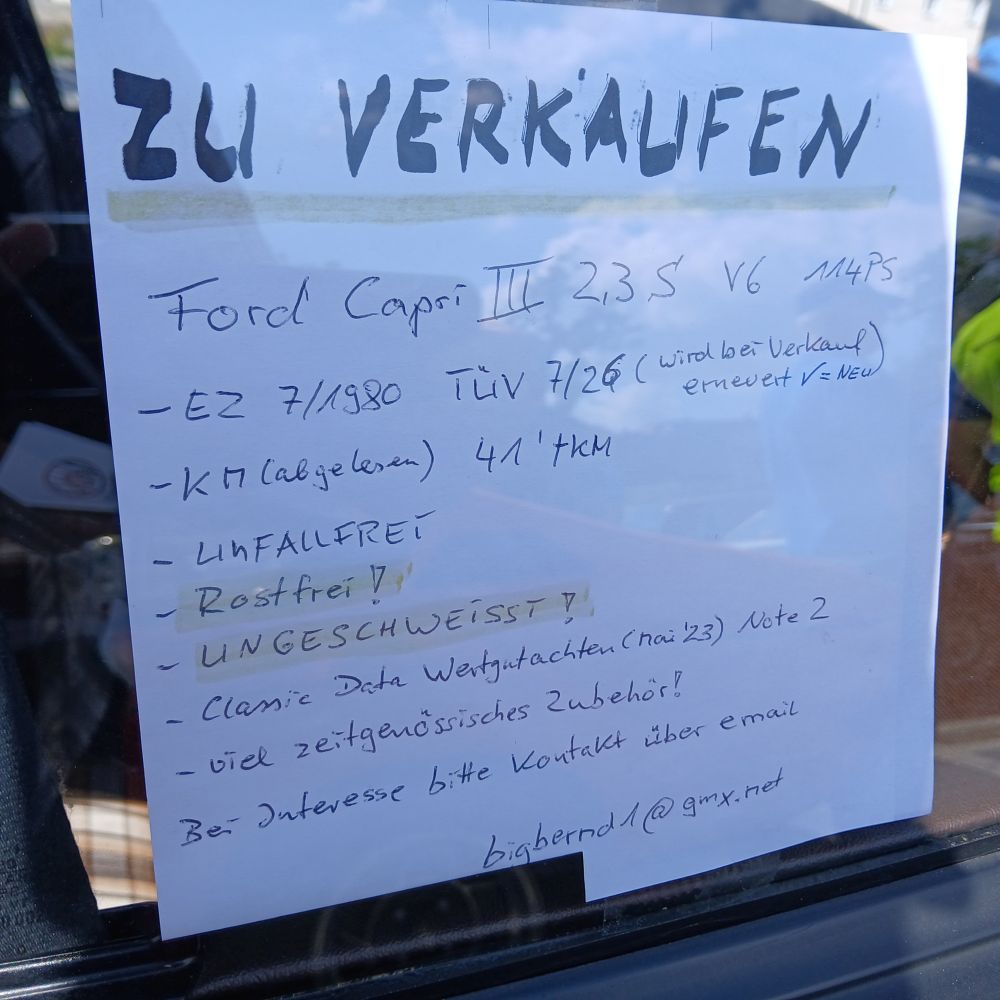 ZU VERKAUFEN
Ford Capri III 2,3 S V6 114PS
- EZ 7/1980 TÜV 7/26 (wird bei Verkauf
erneuert √ = NEU)
- KM (abgelesen) 41' tKM
- UNFALLFREI
- Rostfrei!
- UNGESCHWEISST!
- Classic Data Wertgutachten (Mai '23) Note 2
- viel zeitgenössisches Zubehör!
Bei Interesse bitte Kontakt über email
bigbernd1@gmx.net